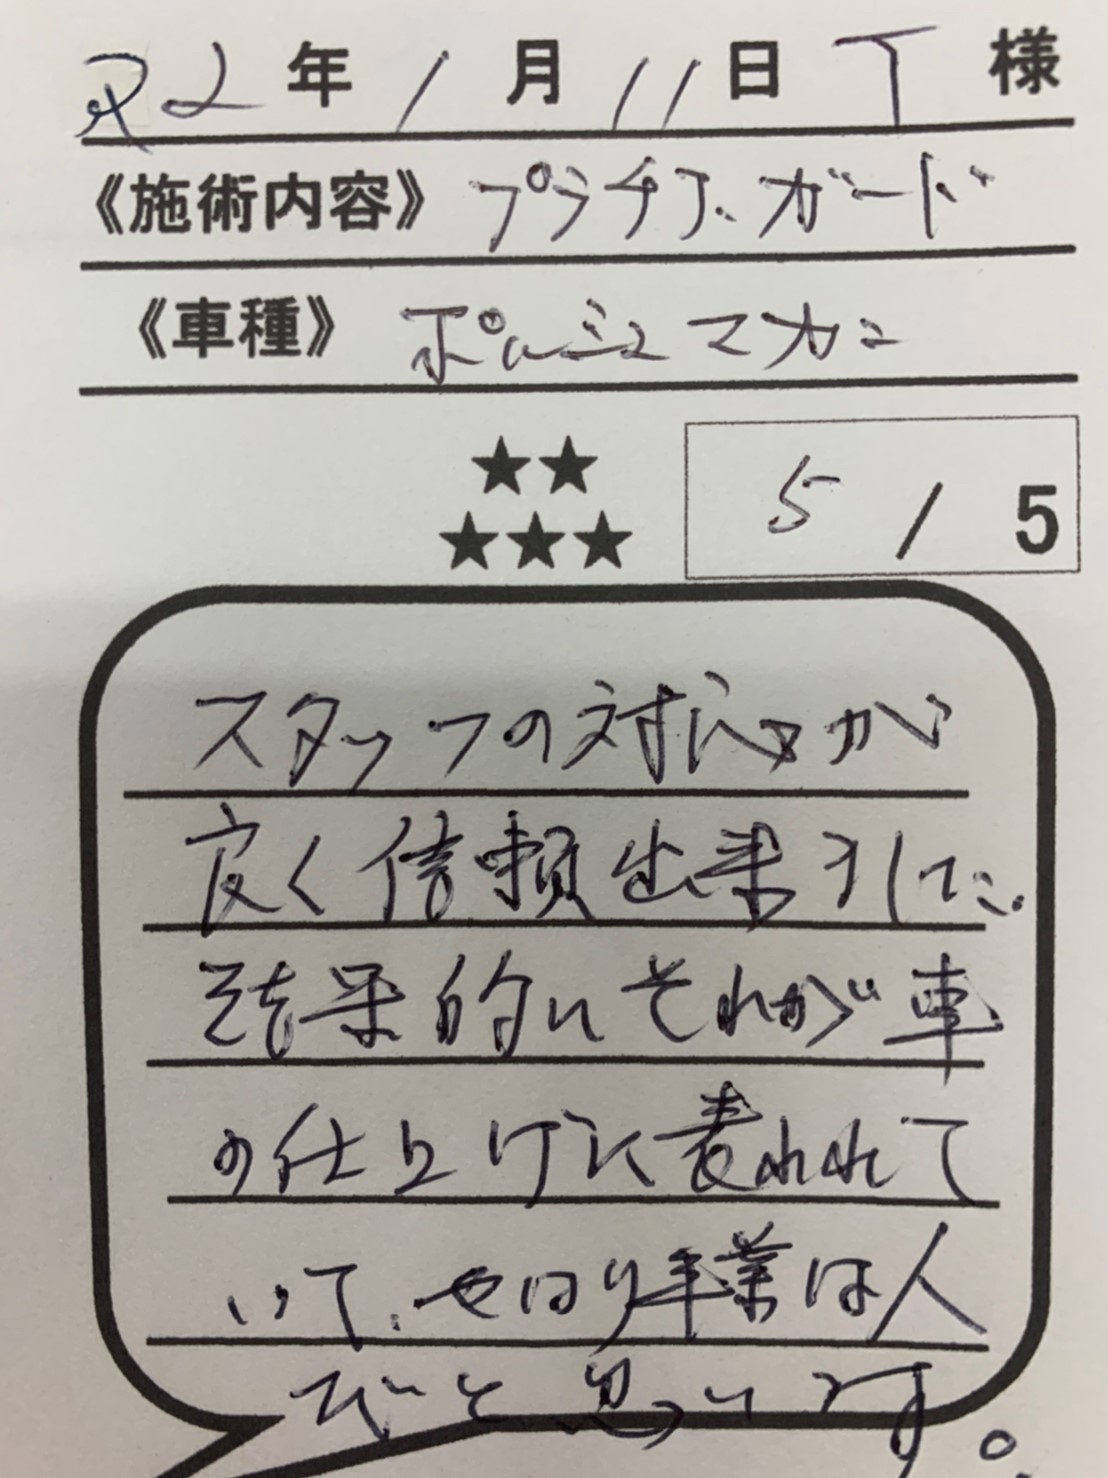 R2年1月11日 T 様
《施術内容》 プラチナ.ガード
《車種》 ポルシェマカン
★★
★★★ 5/5
スタッフの対応が
良く信頼出来ました.
結果的にそれが車
の仕上げに表われて
いて、やはり事業は人
だと思います。